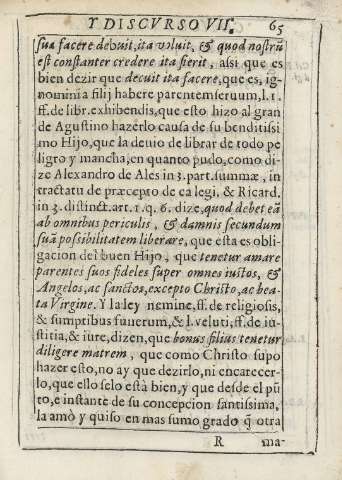 Y DISCVRSO VII. 65
sua facere debuit, ita voluit, & quod nostrũ
est constanter credere ita fierit, assi que es
bien dezir que decuit ita facere, que es, ig-
nominia filij habere parentem seruum, l. 1.
ff. de libr. exhibendis, que esto hizo al gran
de Agustino hazerlo causa de su benditissi
mo Hijo, que la deuio de librar de todo pe
ligro y mancha, en quanto pudo, como di-
ze Alexandro de Ales in 3. part. summæ, in
tractatu de præcepto de ca legi, & Ricard.
in 3. distinct. art. 1. q. 6. dize, quod debet eã
ab omnibus periculis, & damnis secundum
suã possibilitatem liberare, que esta es obli-
gacion del buen Hijo, que tenetur amare
parentes suos fideles super omnes iustos, &
Angelos, ac sanctos, excepto Christo, ac bea
ta Virgine. Y la ley nemine, ff. de religiosis,
& sumptibus funerum, & l. veluti, ff. de iu-
stitia, & iure, dizen, que bonus filius tenetur
diligere matrem, que como Christo supo
hazer esto, no ay que dezirlo, ni encarecer-
lo, que ello selo està bien, y que desde el pũ
to, e instante de su concepcion santissima,
la amò y quiso en mas sumo grado q̃ otra
R ma-